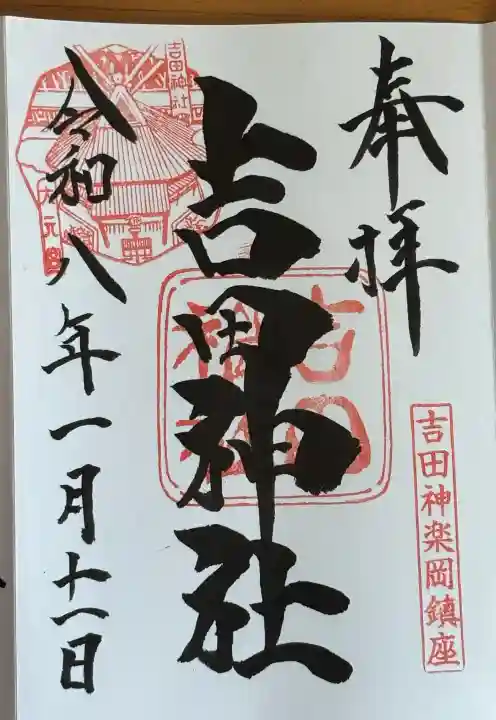 奉拝
吉田神楽岡鎮座
吉田神社
吉田
神社
吉田神社
大元宮
令和八年一月十一日